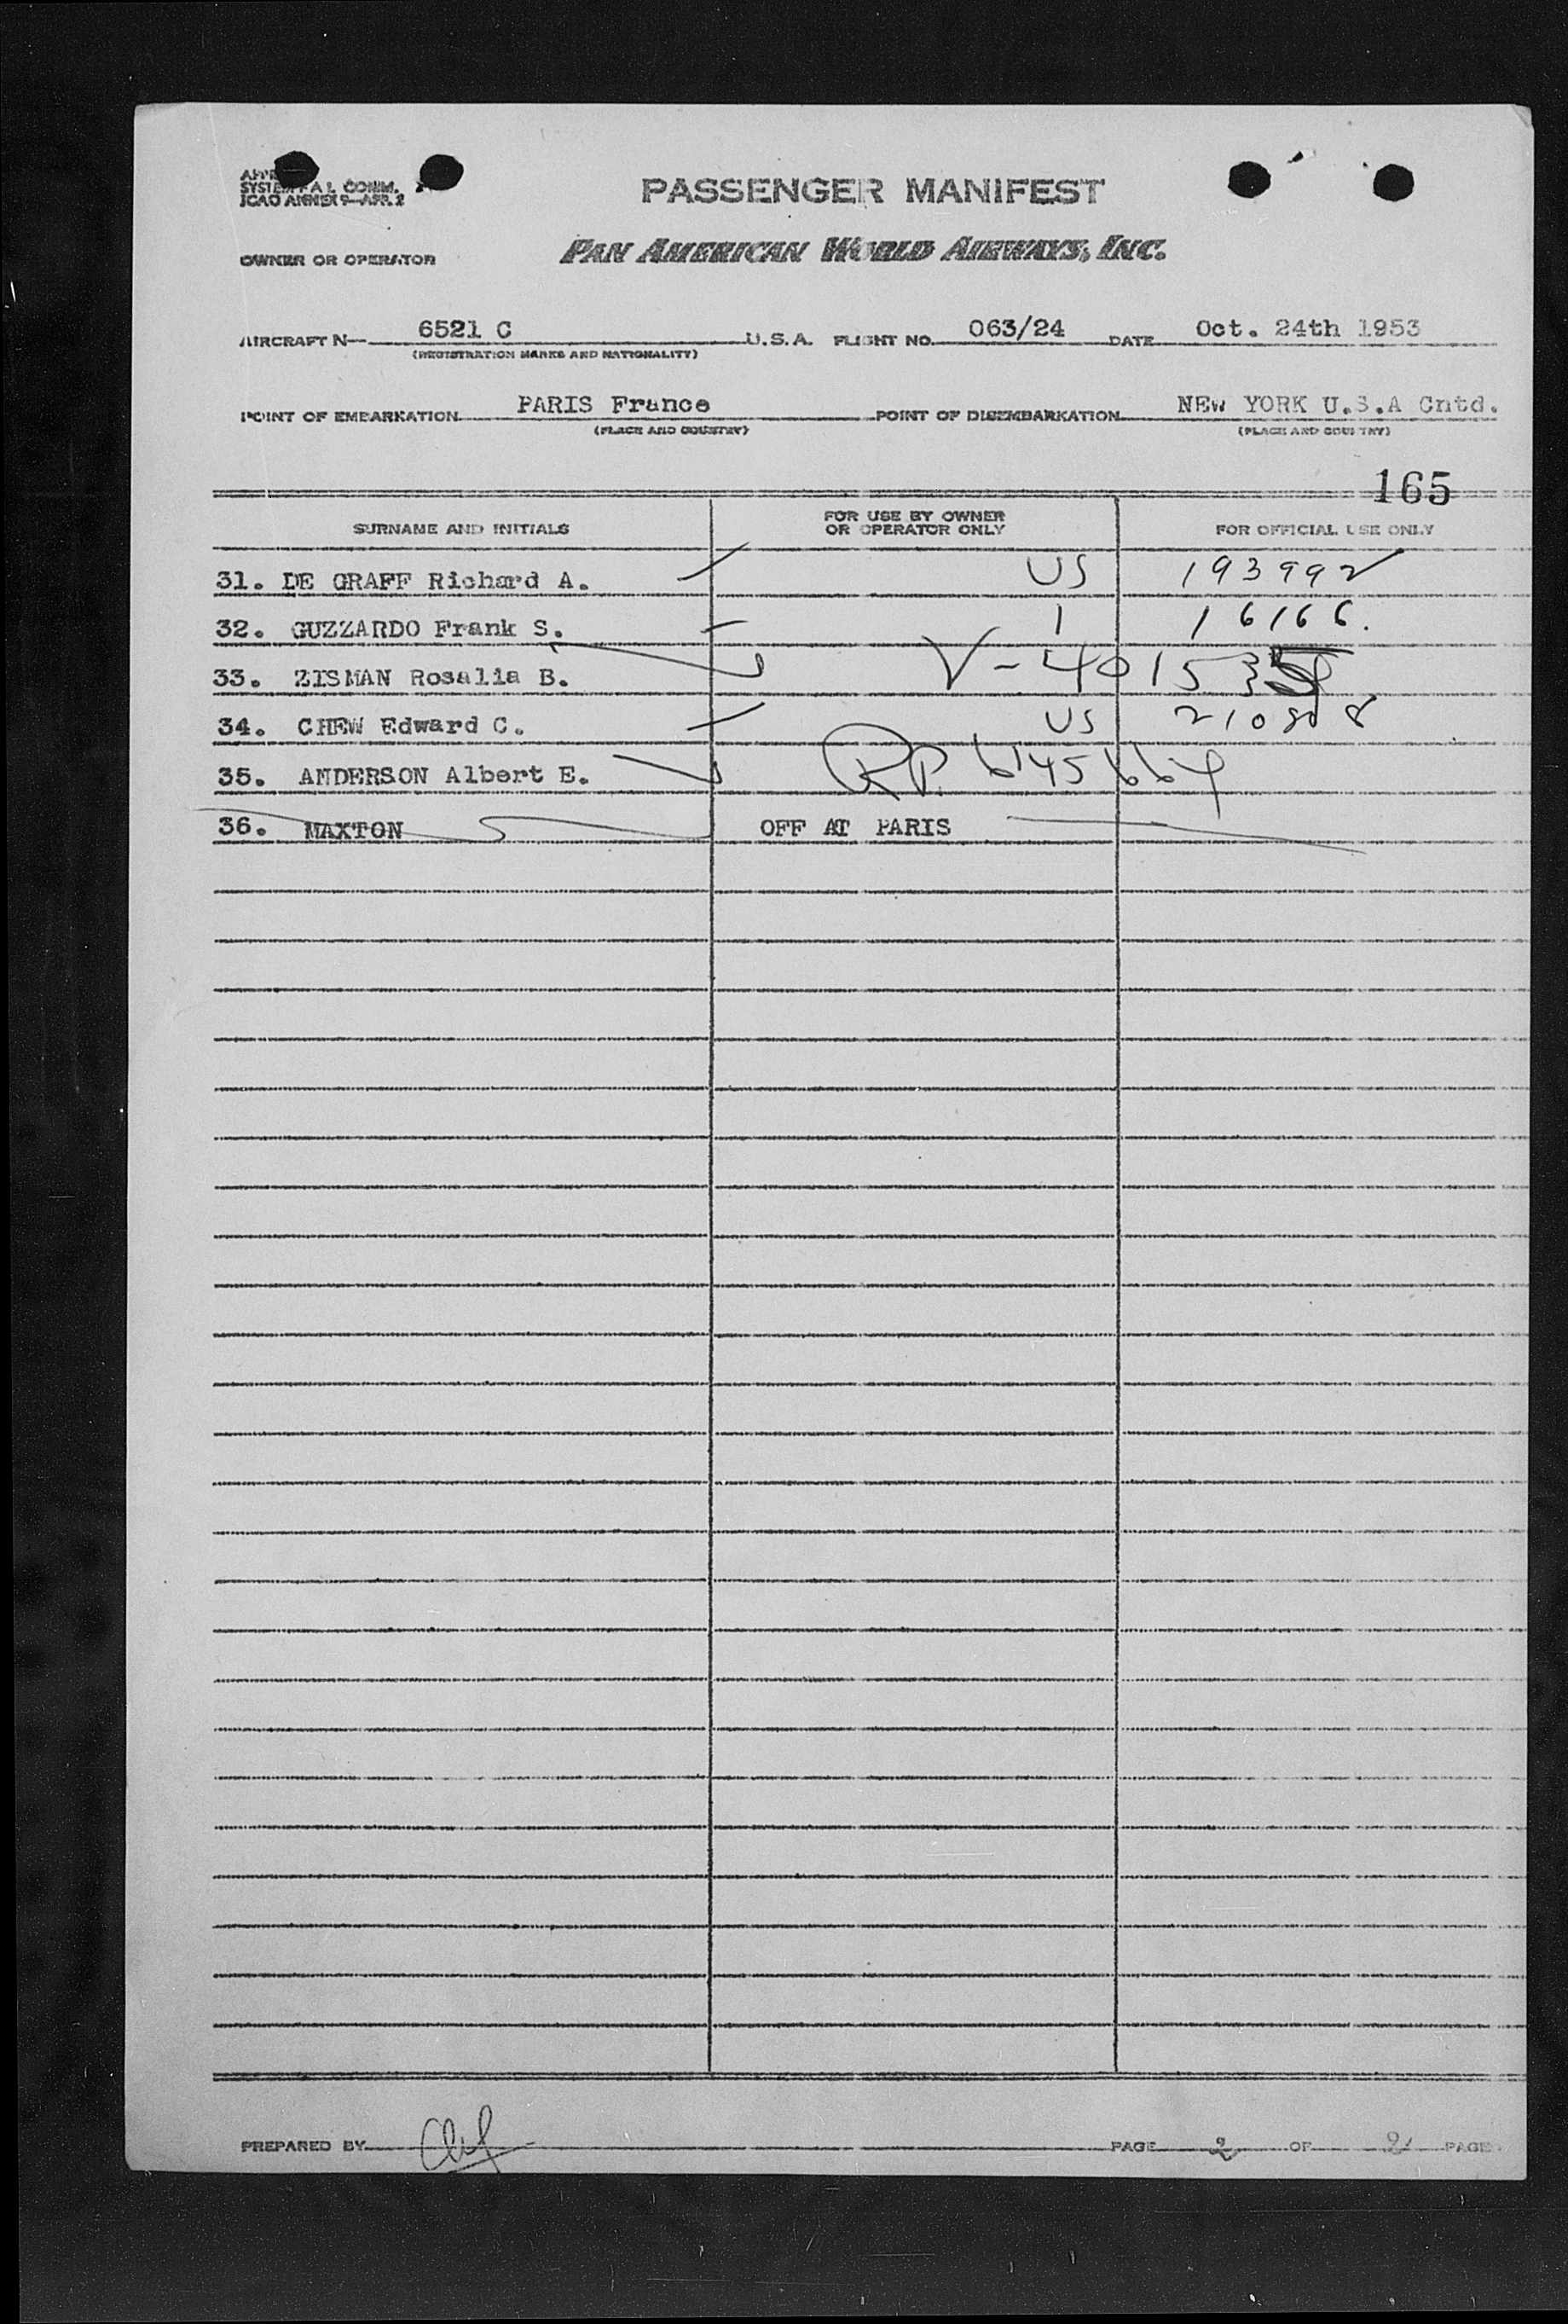 PASSENGER MANIFEST
JCAO ANNEX 9—APP. 2
OWNER OR OPERATOR PAN AMERICAN WORLD AIRWAYS, INC.
AIRCRAFT N— 6521 C U.S.A. FLIGHT NO. 063/24 DATE Oct. 24th 1953
(REGISTRATION MARKS AND NATIONALITY)
POINT OF EMBARKATION PARIS France POINT OF DISEMBARKATION NEW YORK U.S.A Cntd.
(PLACE AND COUNTRY) (PLACE AND COUNTRY)
165
SURNAME AND INITIALS FOR USE BY OWNER OR OPERATOR ONLY FOR OFFICIAL USE ONLY
31. DE GRAFF Richard A. US 193992
32. GUZZARDO Frank S. 1 16166.
33. ZISMAN Rosalia B.
34. CHEW Edward C. US
35. ANDERSON Albert E. RP.
36. MAXTON OFF AT PARIS
PREPARED BY PAGE 2 OF 2 PAGE